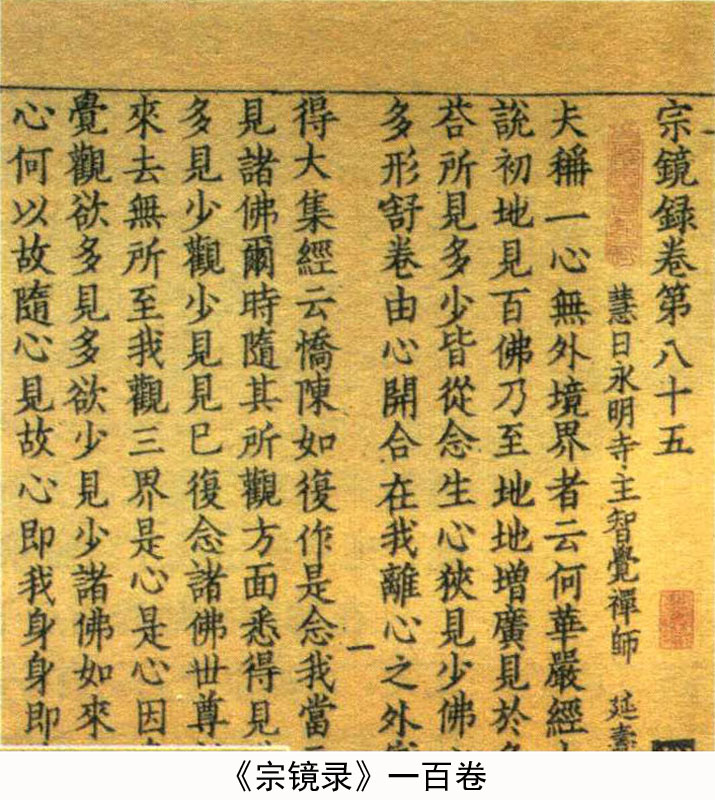 宗鏡録卷第八十五
慧日永明寺主智覺禪師 延壽
夫稱一心無外境界者云何華嚴經
說初地見百佛乃至地地增廣見於多
荅所見多少皆從念生心狹見少佛
多形舒卷由心開合在我離心之外
得大集經云憍陳如復作是念我當
見諸佛爾時隨其所觀方面悉得見
多見少觀少見見已復念諸佛世尊
來去無所至我觀三界是心是心因
覺觀欲多見多欲少見少諸佛如來
心何以故隨心見故心即我身身即
《宗镜录》一百卷